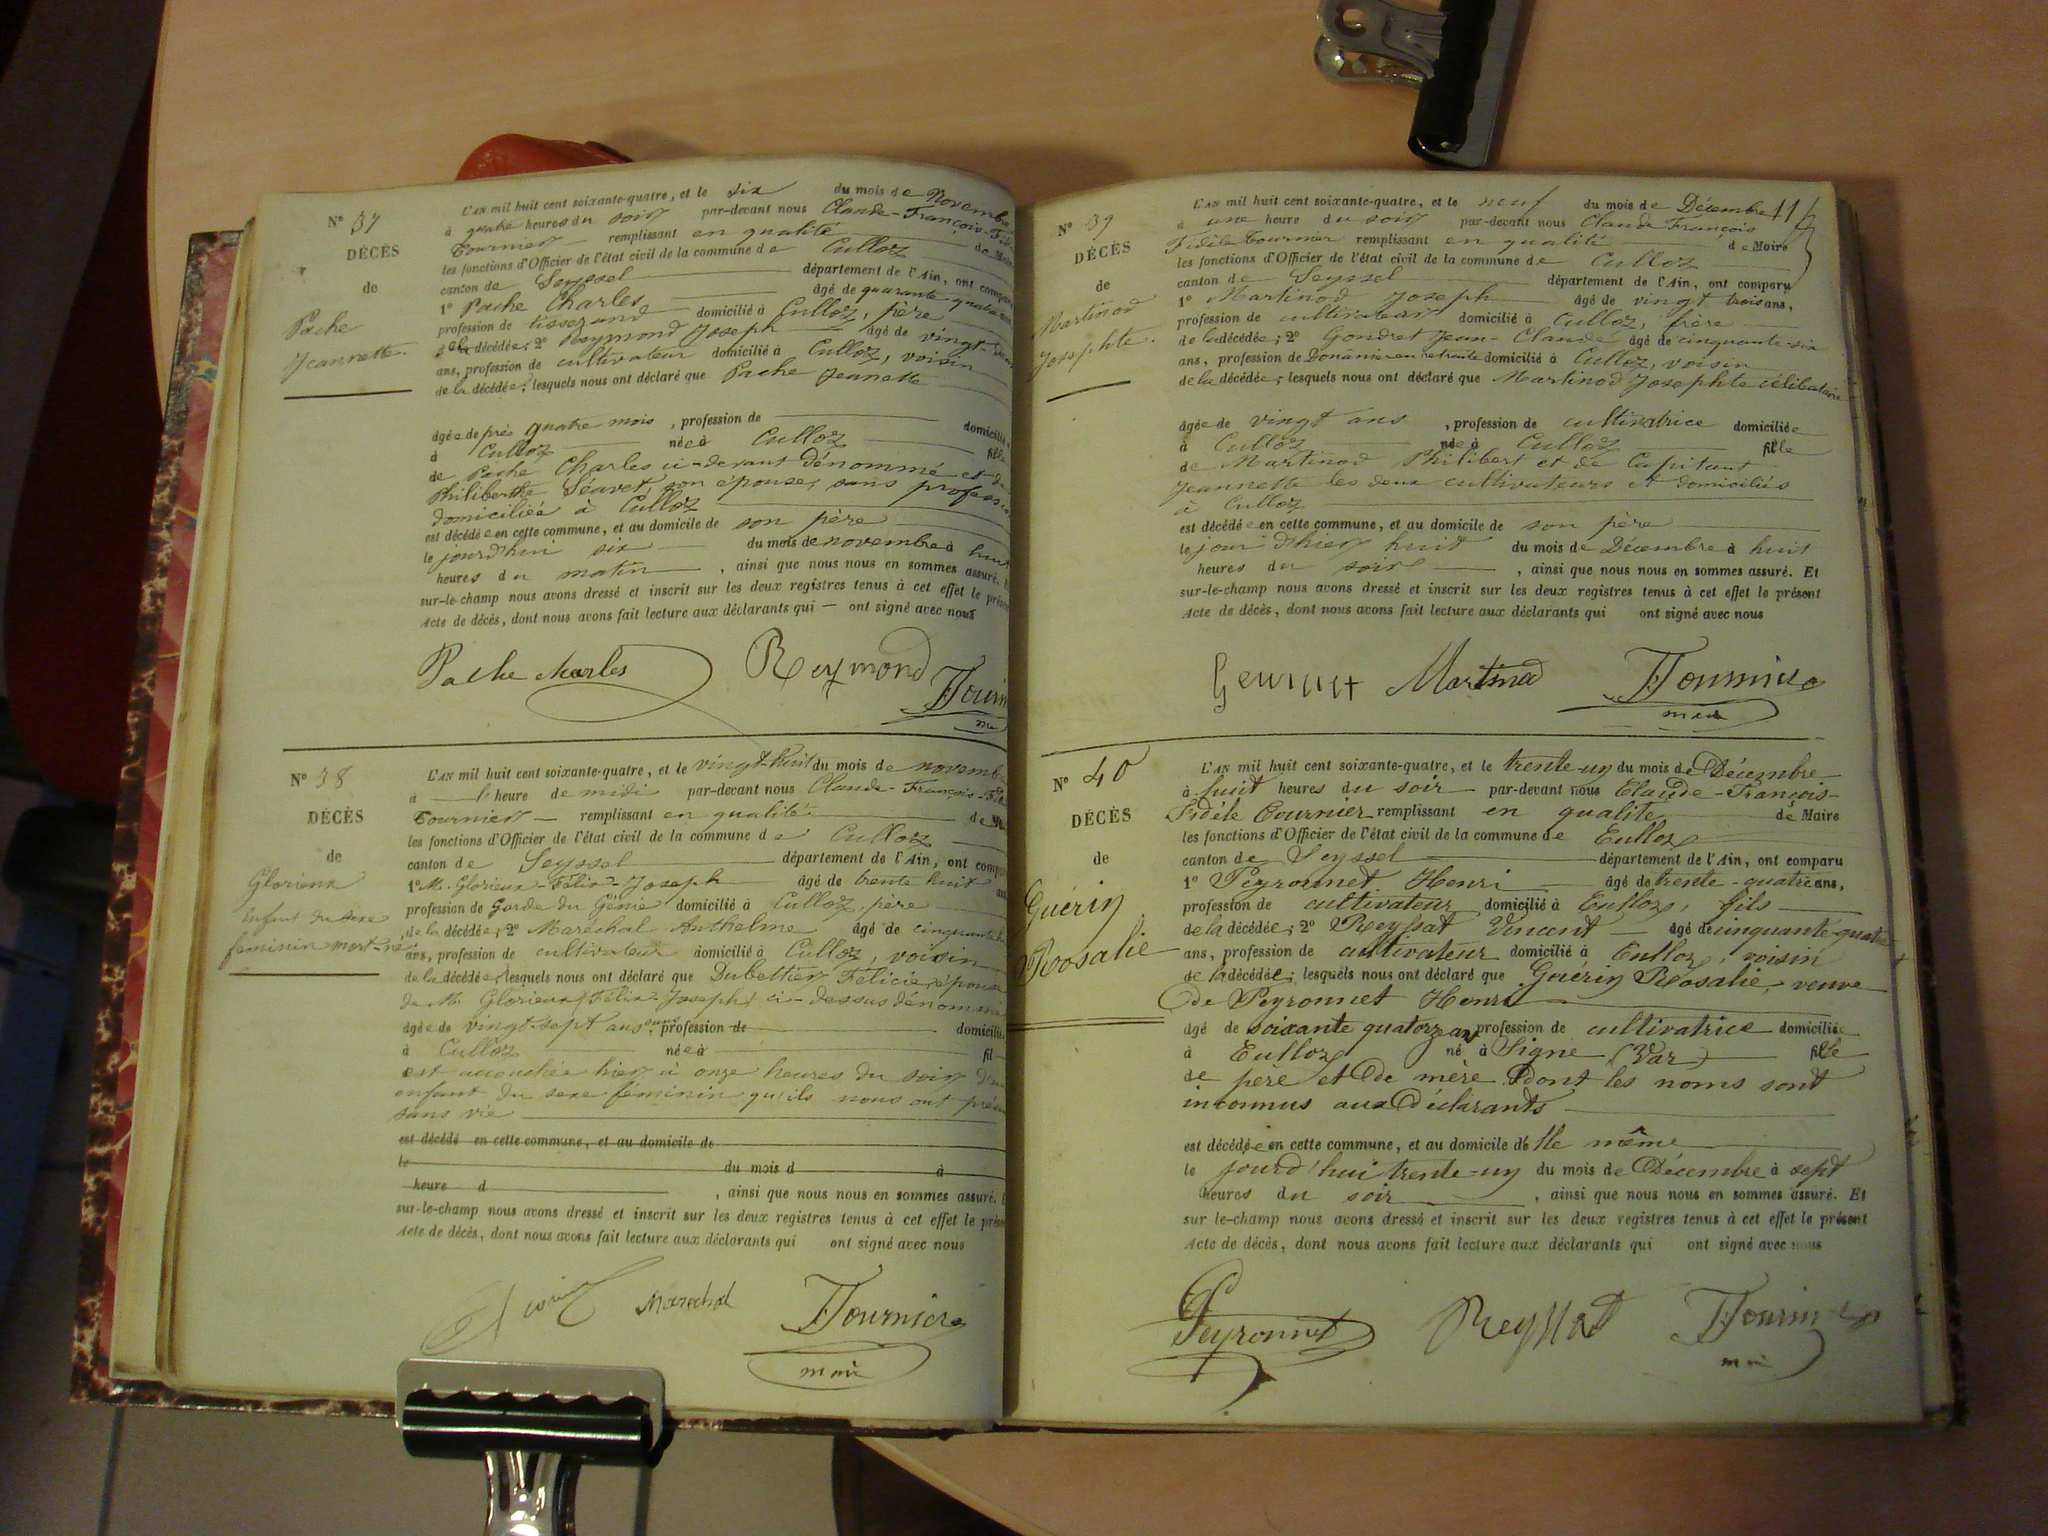 N° 37
DÉCÈS
de
Pache
Jeannette.
L'AN mil huit cent soixante-quatre, et le six du mois de Novembre
à quatre heures du soir par-devant nous Claude-François-Fid
Tournier remplissant en qualité de Maire
les fonctions d'Officier de l'état civil de la commune de Culloz
canton de Seyssel département de l'Ain, ont comparu
1° Pache Charles âgé de quarante quatre ans
profession de tisserand domicilié à Culloz, père
de la décédée; 2° Reymond Joseph âgé de vingt-
ans, profession de cultivateur domicilié à Culloz, voisin
de la décédée; lesquels nous ont déclaré que Pache Jeannette
âgée de près quatre mois, profession de domiciliée
à Culloz née à Culloz fille
de Pache Charles ci-devant dénommé et de
Philiberthe son épouse, sans profession
domiciliée à Culloz
est décédée en cette commune, et au domicile de son père
le jourd'hui six du mois de novembre à huit
heures du matin, ainsi que nous nous en sommes assuré. Et
sur-le-champ nous avons dressé et inscrit sur les deux registres tenus à cet effet le présent
Acte de décès, dont nous avons fait lecture aux déclarants qui — ont signé avec nous
Pache Charles Reymond Tourn
N° 38
DÉCÈS
de
Glorieux
Enfant du sexe
féminin mort-né
L'AN mil huit cent soixante-quatre, et le vingt-huit du mois de novemb
à heure de midi par-devant nous Claude-François-Fid
Tournier — remplissant en qualité de Maire
les fonctions d'Officier de l'état civil de la commune de Culloz
canton de Seyssel département de l'Ain, ont comparu
1° M. Glorieux-Félix-Joseph âgé de trente huit ans
profession de Garde du Génie domicilié à Culloz, père
de la décédée; 2° Maréchal Anthelme âgé de cinquante
ans, profession de cultivateur domicilié à Culloz, voisin
de la décédée, lesquels nous ont déclaré que Dubettier Félicie, épouse
de M. Glorieux (Félix-Joseph) ci-dessus dénommé
âgée de vingt-sept ans, sans profession de domiciliée
à Culloz née à fil
est accouchée hier à onze heures du soir d'un
enfant du sexe féminin qu'ils nous ont présenté
sans vie
est décédé en cette commune, et au domicile de
le du mois d à
heure d , ainsi que nous nous en sommes assuré. E
sur-le-champ nous avons dressé et inscrit sur les deux registres tenus à cet effet le présent
Acte de décès, dont nous avons fait lecture aux déclarants qui ont signé avec nous
Marechal Tournier
maire
N° 39
DÉCÈS
de
Martinod
Josephte.
L'AN mil huit cent soixante-quatre, et le neuf du mois de Décembre
à une heure du soir par-devant nous Claude François
Fidèle Tournier remplissant en qualité de Maire
les fonctions d'Officier de l'état civil de la commune de Culloz
canton de Seyssel département de l'Ain, ont comparu
1° Martinod Joseph âgé de vingt trois ans,
profession de cultivateur domicilié à Culloz, frère
de la décédée; 2° Gondret Jean-Claude âgé de cinquante-six
ans, profession de Douanier en retraite domicilié à Culloz, voisin
de la décédée; lesquels nous ont déclaré que Martinod Josephte célibataire
âgée de vingt ans, profession de cultivatrice domiciliée
à Culloz née à Culloz fille
de Martinod Philibert et de Capitant
Jeannette les deux cultivateurs et domiciliés
à Culloz
est décédée en cette commune, et au domicile de son père
le jour d'hier huit du mois de Décembre à huit
heures du soir, ainsi que nous nous en sommes assuré. Et
sur-le-champ nous avons dressé et inscrit sur les deux registres tenus à cet effet le présent
Acte de décès, dont nous avons fait lecture aux déclarants qui ont signé avec nous
Martinod Tournier
maire
N° 40
DÉCÈS
de
Guérin
Roosalie
L'AN mil huit cent soixante-quatre, et le trente-un du mois de Décembre
à huit heures du soir par-devant nous Claude-François-
Fidèle Tournier remplissant en qualité de Maire
les fonctions d'Officier de l'état civil de la commune de Culloz
canton de Seyssel département de l'Ain, ont comparu
1° Peyronnet Henri âgé de trente-quatre ans,
profession de cultivateur domicilié à Culloz, fils
de la décédée; 2° Reyssat Vincent âgé de cinquante-quatre
ans, profession de cultivateur domicilié à Culloz, voisin
de la décédée; lesquels nous ont déclaré que Guérin Rosalie, veuve
de Peyronnet Henri
âgé de soixante quatorze ans profession de cultivatrice domiciliée
à Culloz né à Signe (Var) fille
de père et de mère dont les noms sont
inconnus aux Déclarants
est décédée en cette commune, et au domicile d'elle même
le jourd'hui trente-un du mois de Décembre à sept
heures du soir, ainsi que nous nous en sommes assuré. Et
sur le-champ nous avons dressé et inscrit sur les deux registres tenus à cet effet le présent
Acte de décès, dont nous avons fait lecture aux déclarants qui ont signé avec nous
Peyronnet Reyssat Tournier
maire